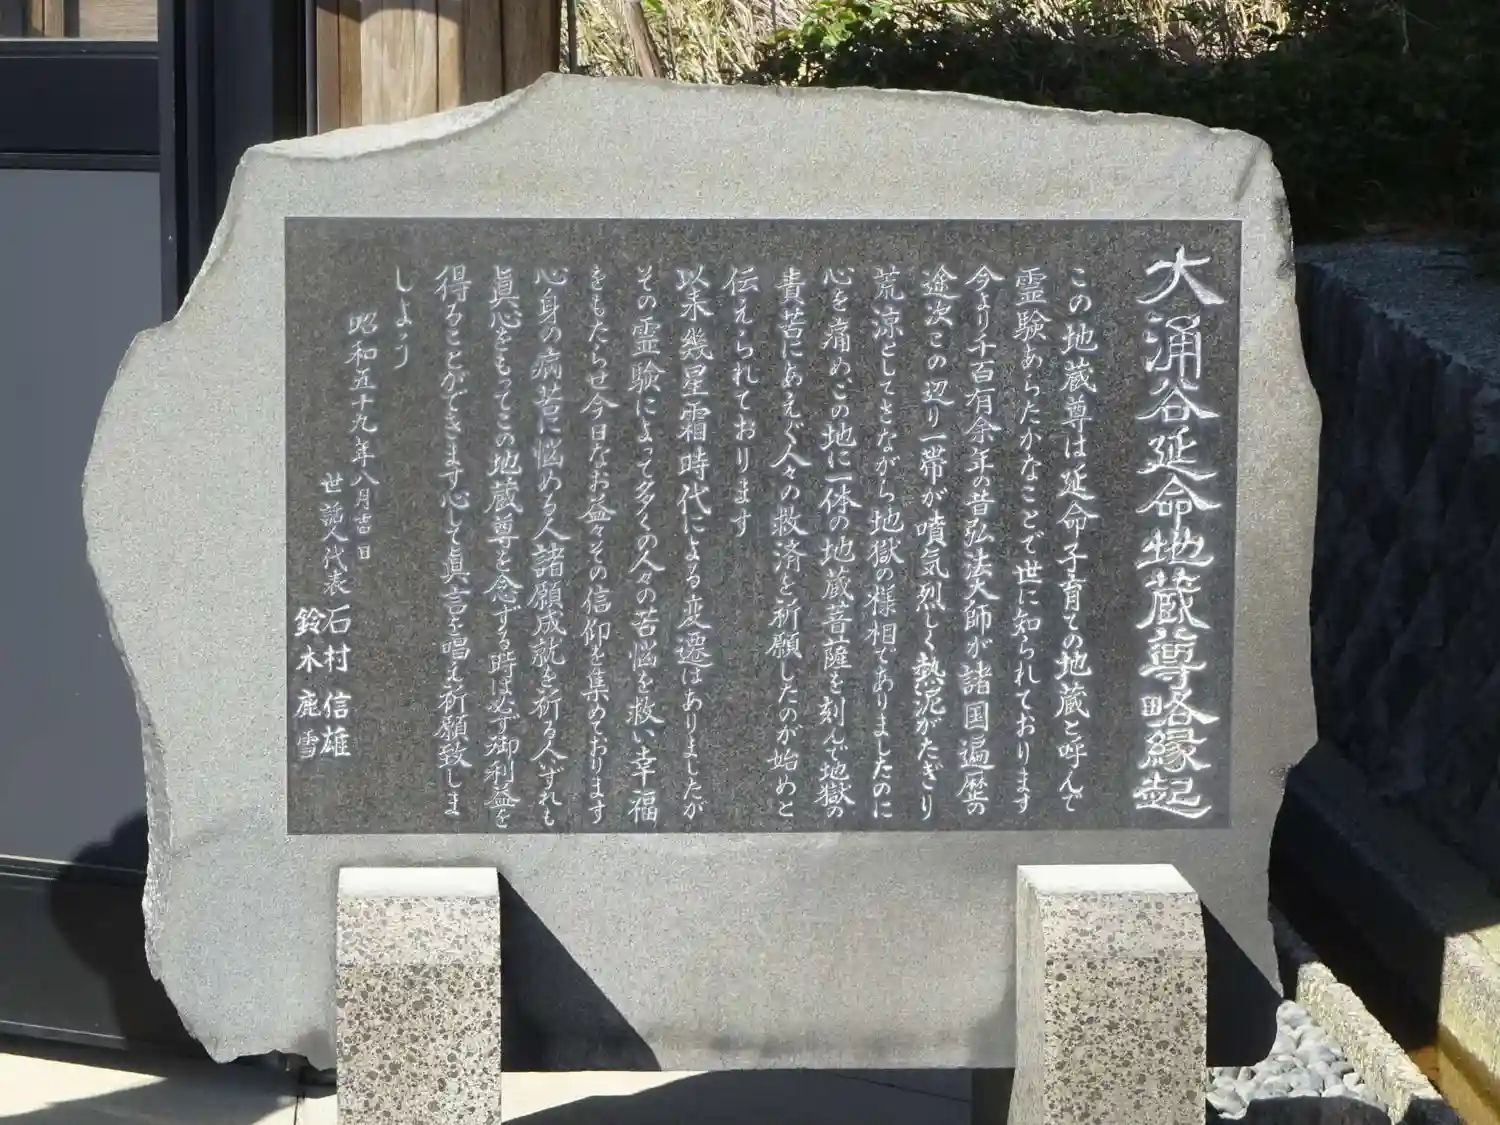 大涌谷延命地蔵尊略縁起
この地蔵尊は延命子育ての地蔵と呼んで
霊験あらたかなことで世に知られております
今より千百有余年の昔弘法大師が諸国遍歴の
途次この辺り一帯が噴気烈しく熱泥がたぎり
荒涼としてさながら地獄の様相でありましたのに
心を痛めこの地に一体の地蔵菩薩を刻んで地獄の
責苦にあえぐ人々の救済を祈願したのが始めと
伝えられております
以来幾星霜時代による変遷はありましたが
その霊験によって多くの人々の苦悩を救い幸福
をもたらせ今日なお益々その信仰を集めております
心身の病苦に悩める人諸願成就を祈る人いずれも
眞心をもってこの地蔵尊を念ずる時は必ず御利益を
得ることができます心して眞言を唱え祈願致しま
しょう
昭和五十九年八月吉日
世話人代表 石村信雄
鈴木鹿雪